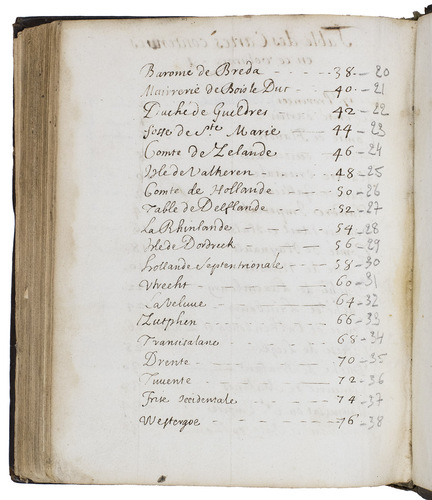 Baronie de Breda - - - - 38 - 20
Mairrerie de Bois le Duc - - 40 - 21
Duché de Gueldres - - 42 - 22
fosse de Ste Marie - - - 44 - 23
Comté de Zelande - - - 46 - 24
Isle de Valkeren - - - 48 - 25
Comté de Hollande - - - 50 - 26
Table de Delflande - - - 52 - 27
La Rhinlande - - - - 54 - 28
Isle de Dordreck - - - - 56 - 29
hollande Septentrionale - - - 58 - 30
Vtrecht - - - - 60 - 31
La Veluue - - - - 64 - 32
Zutphen - - - - 66 - 33
Transisalane - - - - 68 - 34
Drente - - - - 70 - 35
Tuuente - - - - 72 - 36
Frise occidentale - - - 74 - 37
Westergoe - - - - 76 - 38